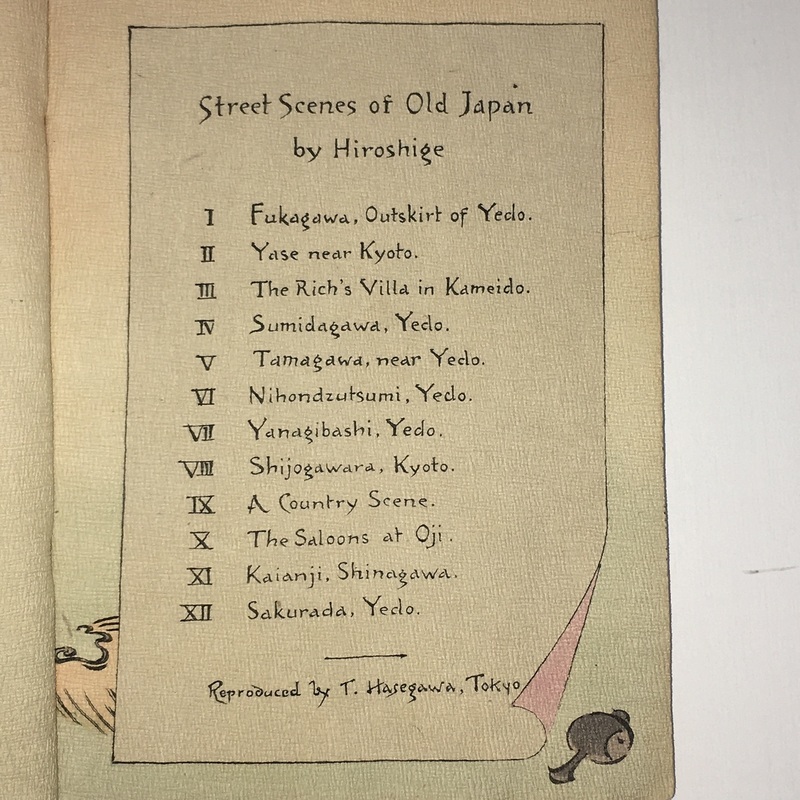 Street Scenes of Old Japan
by Hiroshige
I Fukagawa, Outskirt of Yedo.
II Yase near Kyoto.
III The Rich's Villa in Kameido.
IV Sumidagawa, Yedo.
V Tamagawa, near Yedo.
VI Nihondzutsumi, Yedo.
VII Yanagibashi, Yedo.
VIII Shijogawara, Kyoto.
IX A Country Scene.
X The Saloons at Oji.
XI Kaianji, Shinagawa.
XII Sakurada, Yedo.
Reproduced by T. Hasegawa, Tokyo